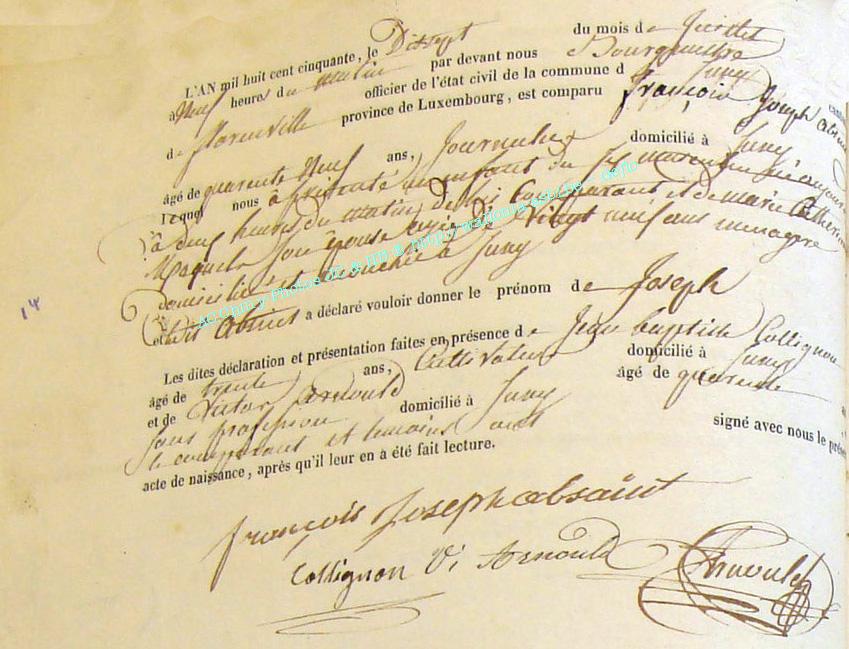 L'AN mil huit cent cinquante, le Dissept du mois de Juillet
à Neuf heures du matin par devant nous Bourguestre
officier de l'état civil de la commune d Juny
de florenville province de Luxembourg, est comparu françois Joseph
âgé de quarente Neuf ans, Journalier domicilié à Juny
lequel nous à présenté un enfant du
à heures du matin, De lui Comparant et de marie Catherine
son épouse agée de Vingt neuf ans menagere
domiciliée et accouchée à Juny
et a déclaré vouloir donner le prénom de Joseph
Les dites déclaration et présentation faites en présence de Jean baptiste Collignon
âgé de trente ans, Cultivateur domicilié à Juny
et de Victor Arnould âgé de quarente
sans profession domicilié à Juny
le comparant et temoins ont signé avec nous le
acte de naissance, après qu'il leur en à été fait lecture.
françois Joseph absaint
Collignon Vi Arnould
14